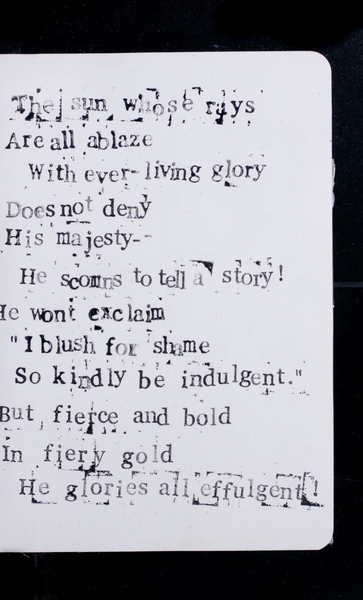 The sun whose rays
Are all ablaze
With ever-living glory
Does not deny
His majesty--
He scorns to tell a story!
He wont exclaim
"I blush for shame
So kindly be indulgent."
But, fierce and bold
In fiery gold
He glories all effulgent!